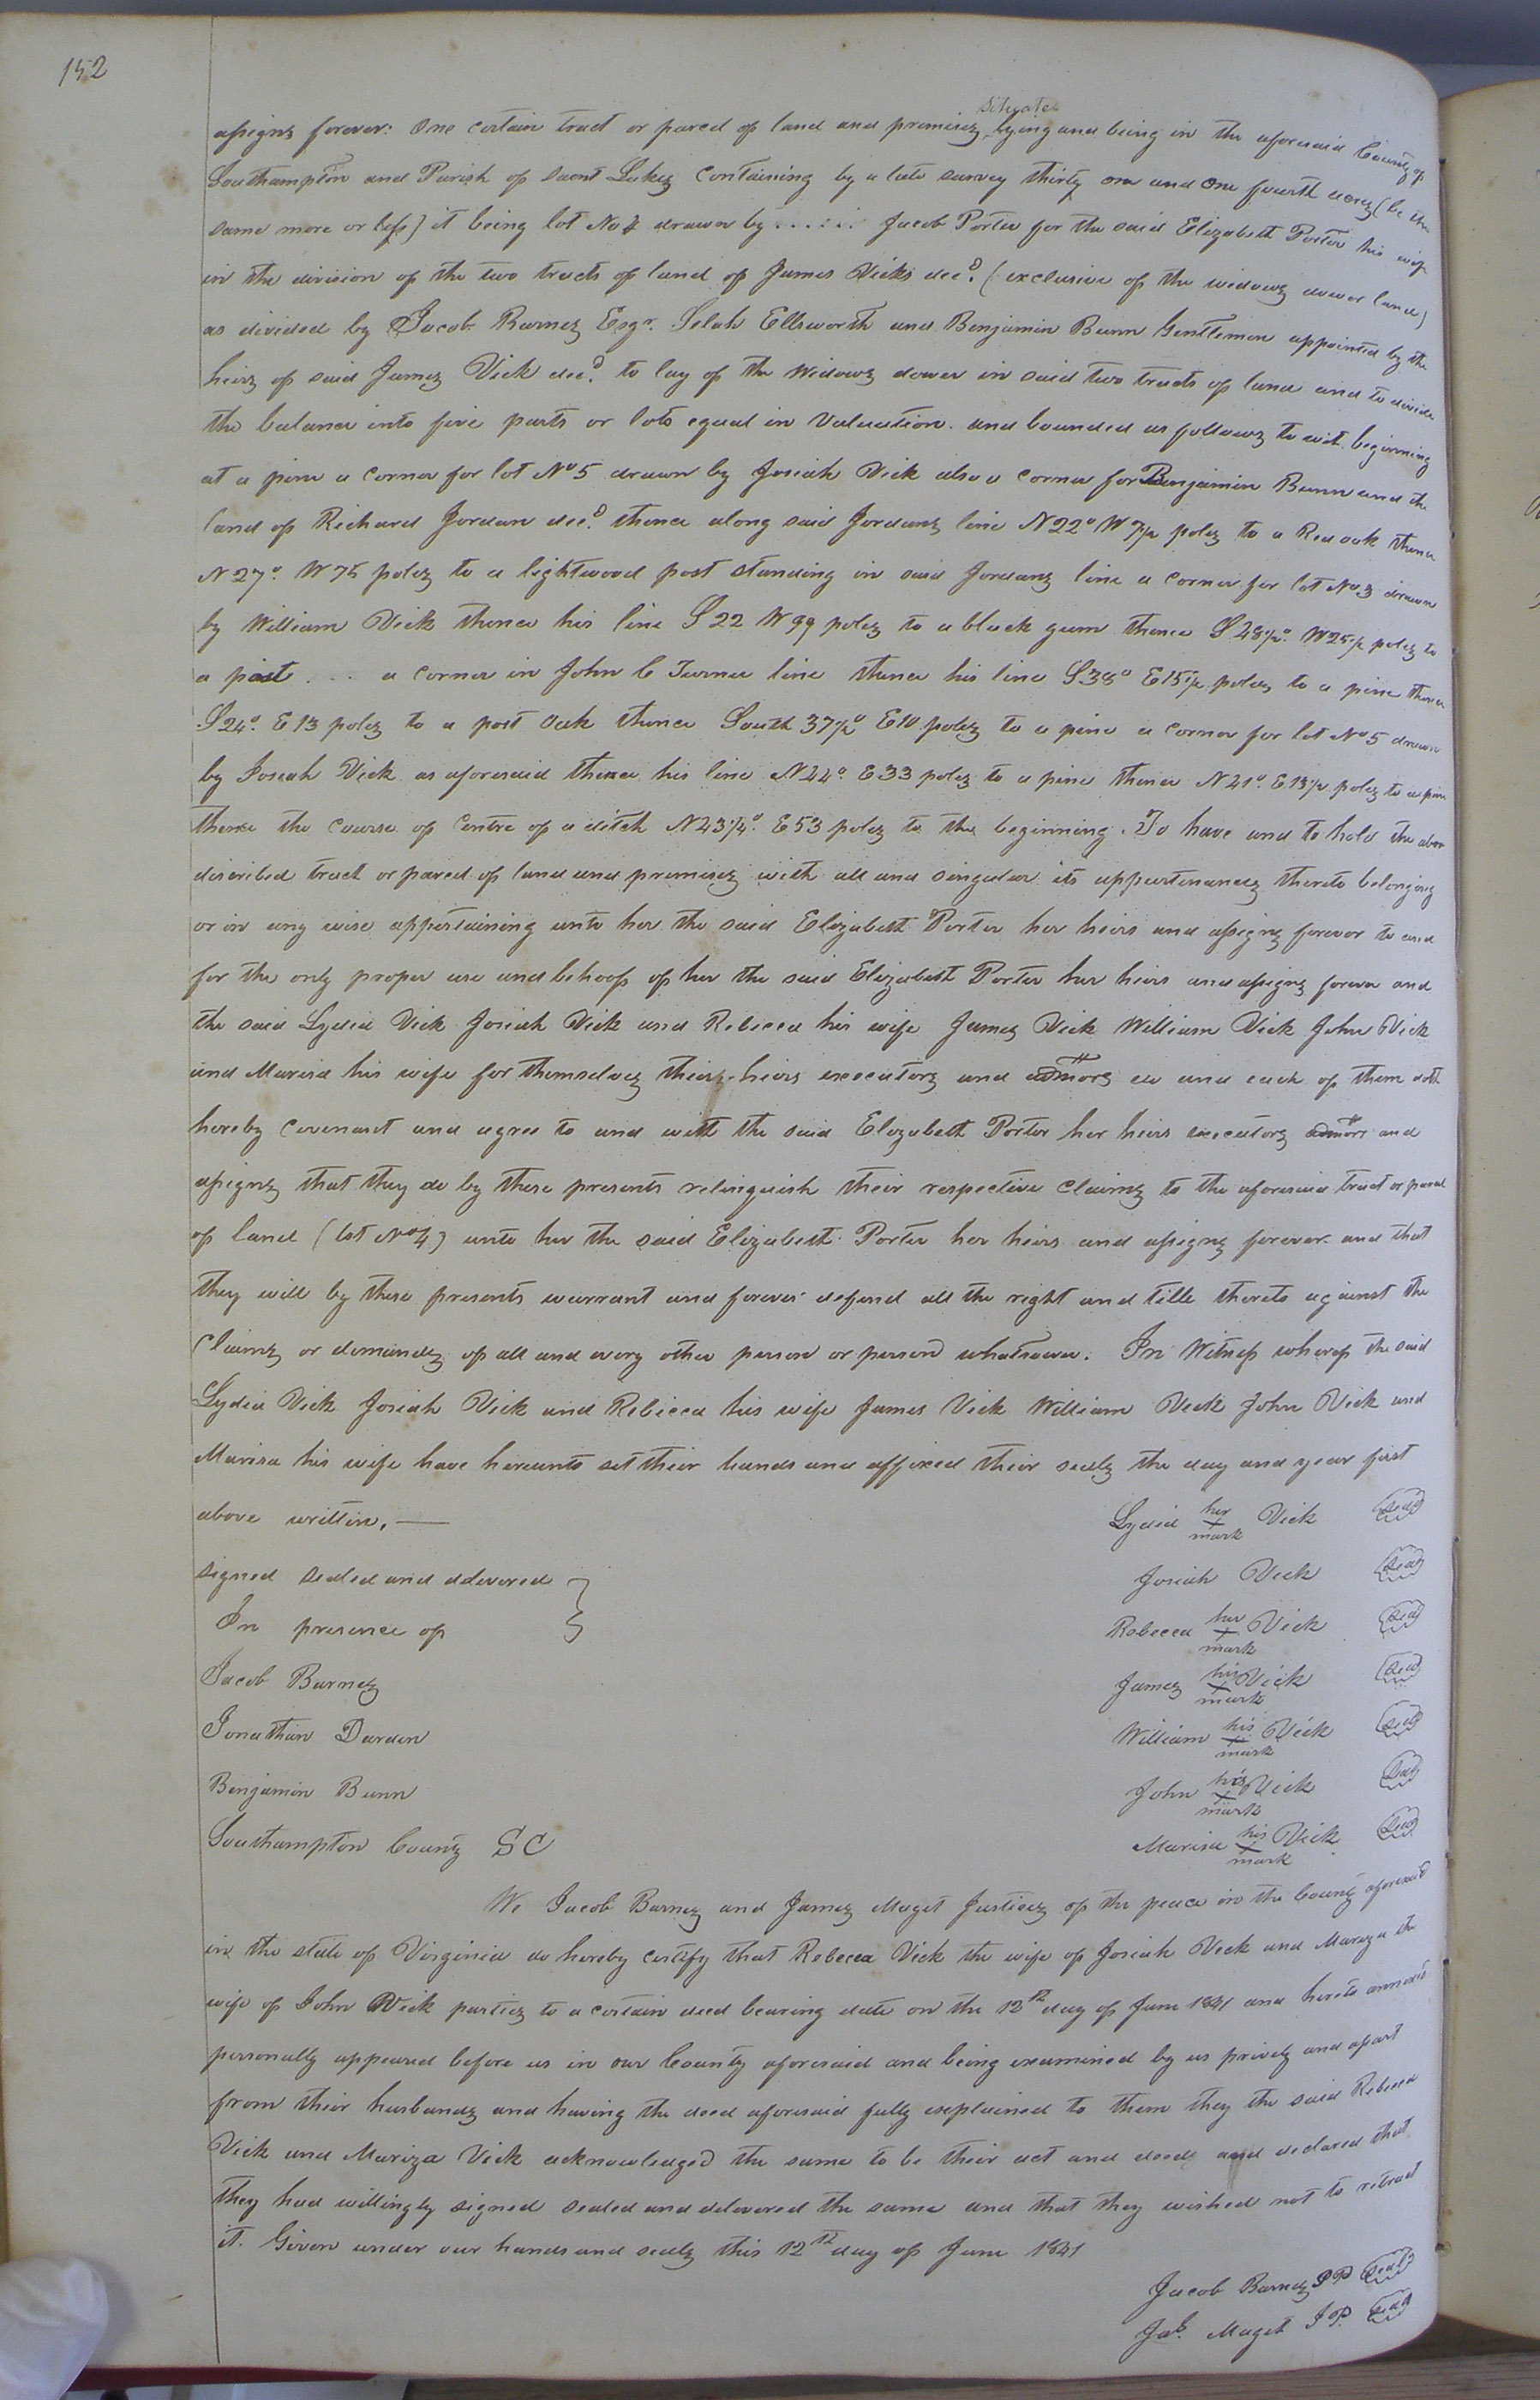 152
assigns forever: One certain tract or parcel of land and premises, situate lying and being in the aforesaid County of
Southampton and Parish of Saont Lukes Containing by a late survey thirty one and one fourth acres (be the
same more or less) it being lot No 4 drawn by ...... Jacob Porter for the said Elizabeth Porter his wife
in the division of the two tracts of land of James Vicks decd. (exclusive of the widows dower land)
as divided by Jacob Barnes Esqr. Selah Ellsworth and Benjamin Bunn Gentlemen appointed by the
heirs of said James Vick decd. to lay of the Widows dower in said two tracts of land and to divide
the balance into five parts or lots equal in Valuation. and bounded as follows to wit. beginning
at a pine a corner for lot No 5 drawn by Josiah Vick also a corner for Benjamin Bunn and the
land of Richard Jordan decd. thence along said Jordans line N22° W 7½ poles to a Red oak thence
N27°. W75 poles to a lightwood post standing in said Jordans line a corner for lot No 3 drawn
by William Vick thence his line S22 W99 poles to a black gum thence S48½°. W25½ poles to
a post ... a corner in John C Turner line thence his line S38° E15½ poles to a pine thence
S24°. E13 poles to a post Oak thence South 37½° E10 poles to a pine a corner for lot No 5 drawn
by Josiah Vick as aforesaid thence his line N44°. E33 poles to a pine thence N41°. E13½ poles to a pine
thence the course of Centre of a ditch N43¼°. E53 poles to the beginning. To have and to hold the above
discribed tract or parcel of land and premises with all and singular its appurtenances thereto belonging
or in any wise appertaining unto her the said Elizabeth Porter her heirs and assigns forever to and
for the only proper use and behoof of her the said Elizabeth Porter her heirs and assigns forever and
the said Lydia Vick Josiah Vick and Rebecca his wife James Vick William Vick John Vick
and Marisa his wife for themselves theirs heirs executors and admors do and each of them doth
hereby covenant and agree to and with the said Elizabeth Porter her heirs executors admors and
assigns that they do by these presents relinquish their respective claims to the aforesaid tract or parcel
of land (lot No 4) unto her the said Elizabeth Porter her heirs and assigns forever and that
they will by these presents warrant and forever defend all the right and title thereto against the
Claims or demands of all and every other person or persons whatsoever. In Witness whereof the said
Lydia Vick Josiah Vick and Rebecca his wife James Vick William Vick John Vick and
Marisa his wife have hereunto set their hands and affixed their seals the day and year first
above written. — Lydia her + mark Vick Seal
signed sealed and delivered } Josiah Vick Seal
In presence of Rebecca her + mark Vick Seal
Jacob Barnes James his + mark Vick Seal
Jonathan Darden William his + mark Vick Seal
Benjamin Bunn John his + mark Vick Seal
Southampton County SC Marisa his + mark Vick Seal
We Jacob Barnes and James Maget Justices of the peace in the County aforesaid
in the state of Virginia do hereby certify that Rebecca Vick the wife of Josiah Vick and Mariza the
wife of John Vick parties to a certain deed bearing date on the 12th day of June 1841 and hereto annexed
personally appeared before us in our County aforesaid and being examined by us privily and apart
from their husbands and having the deed aforesaid fully explained to them they the said Rebecca
Vick and Mariza Vick acknowledged the same to be their act and deed and declared that
they had willingly signed sealed and delivered the same and that they wished not to retract
it. Given under our hands and seals this 12th day of June 1841
Jacob Barnes JP Seal
Jas. Maget J.P. Seal